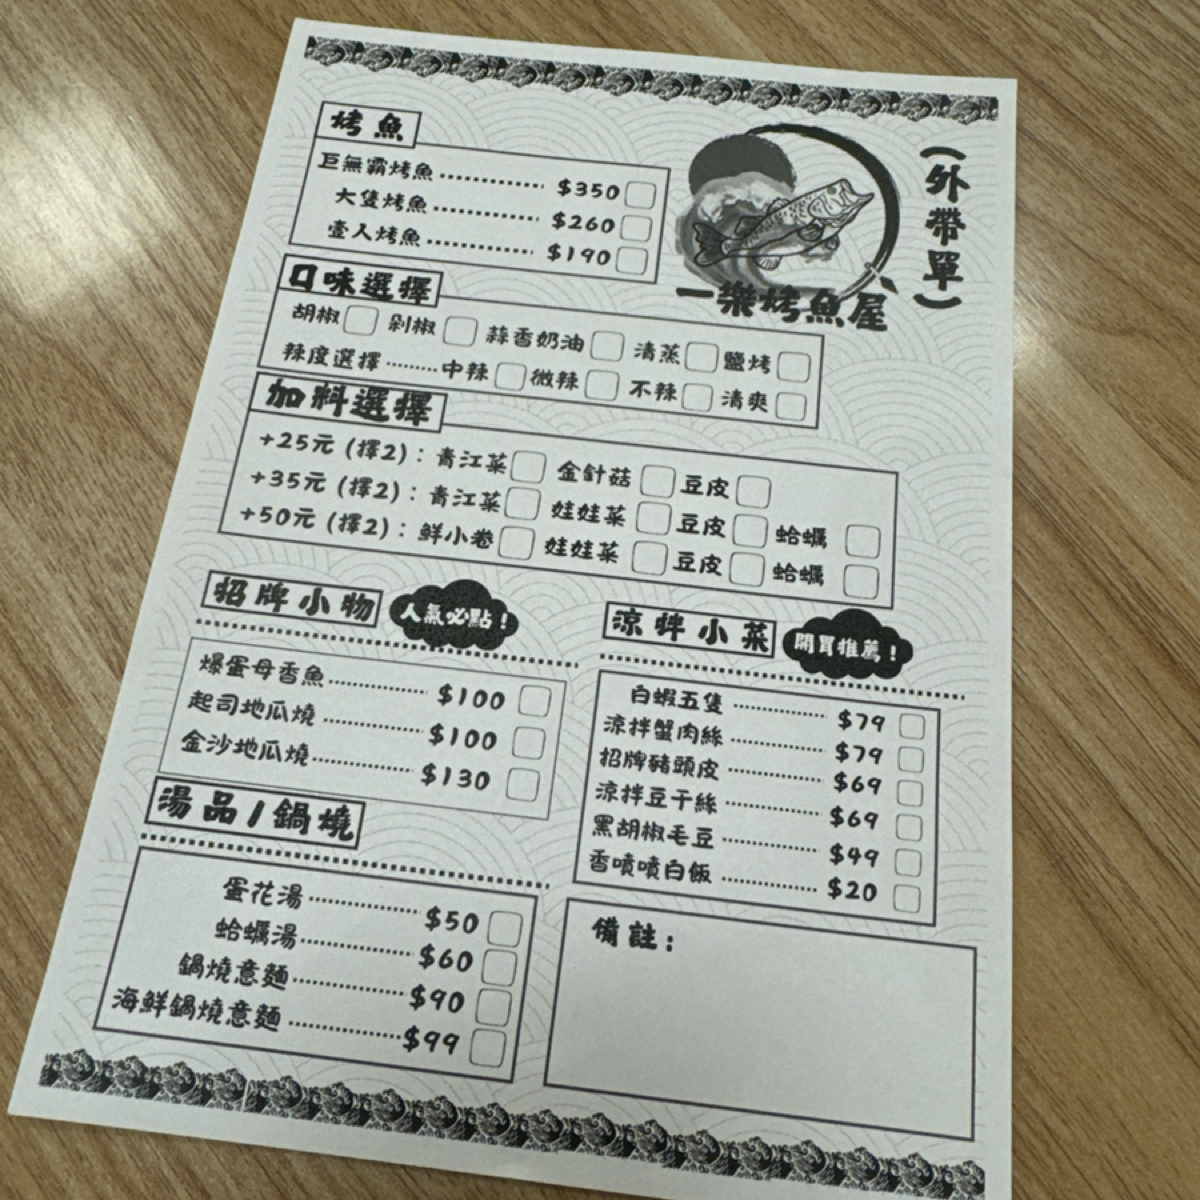 (外帶單)
一樂烤魚屋
烤魚
巨無霸烤魚 $350
大隻烤魚 $260
壹人烤魚 $190
口味選擇
胡椒 剁椒 蒜香奶油 清蒸 鹽烤
辣度選擇 中辣 微辣 不辣 清爽
加料選擇
+25元 (擇2)：青江菜 金針菇 豆皮
+35元 (擇2)：青江菜 娃娃菜 豆皮 蛤蠣
+50元 (擇2)：鮮小卷 娃娃菜 豆皮 蛤蠣
招牌小物 人氣必點！
爆蛋母香魚 $100
起司地瓜燒 $100
金沙地瓜燒 $130
湯品/鍋燒
蛋花湯 $50
蛤蠣湯 $60
鍋燒意麵 $90
海鮮鍋燒意麵 $99
涼拌小菜 開買推薦！
白蝦五隻 $79
涼拌蟹肉絲 $79
招牌豬頭皮 $69
涼拌豆干絲 $69
黑胡椒毛豆 $49
香噴噴白飯 $20
備註：